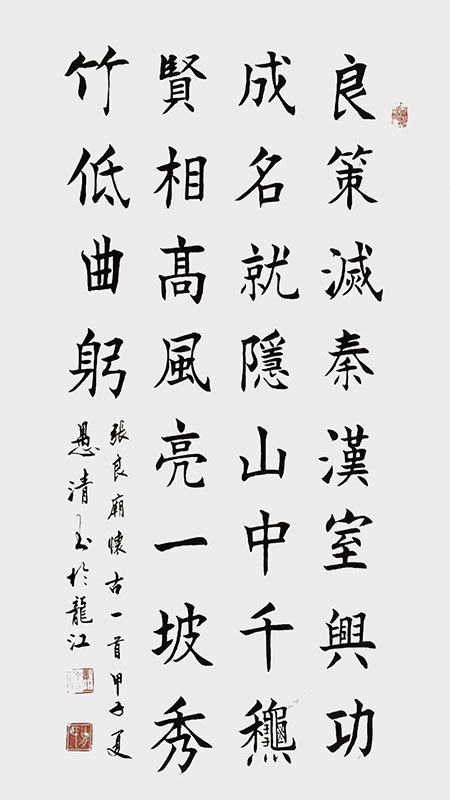 良策滅秦漢室興功
成名就隱山中千龝
賢相髙風亮一坡秀
竹低曲躬
張良廟懷古一首甲子夏
愚清於龍江